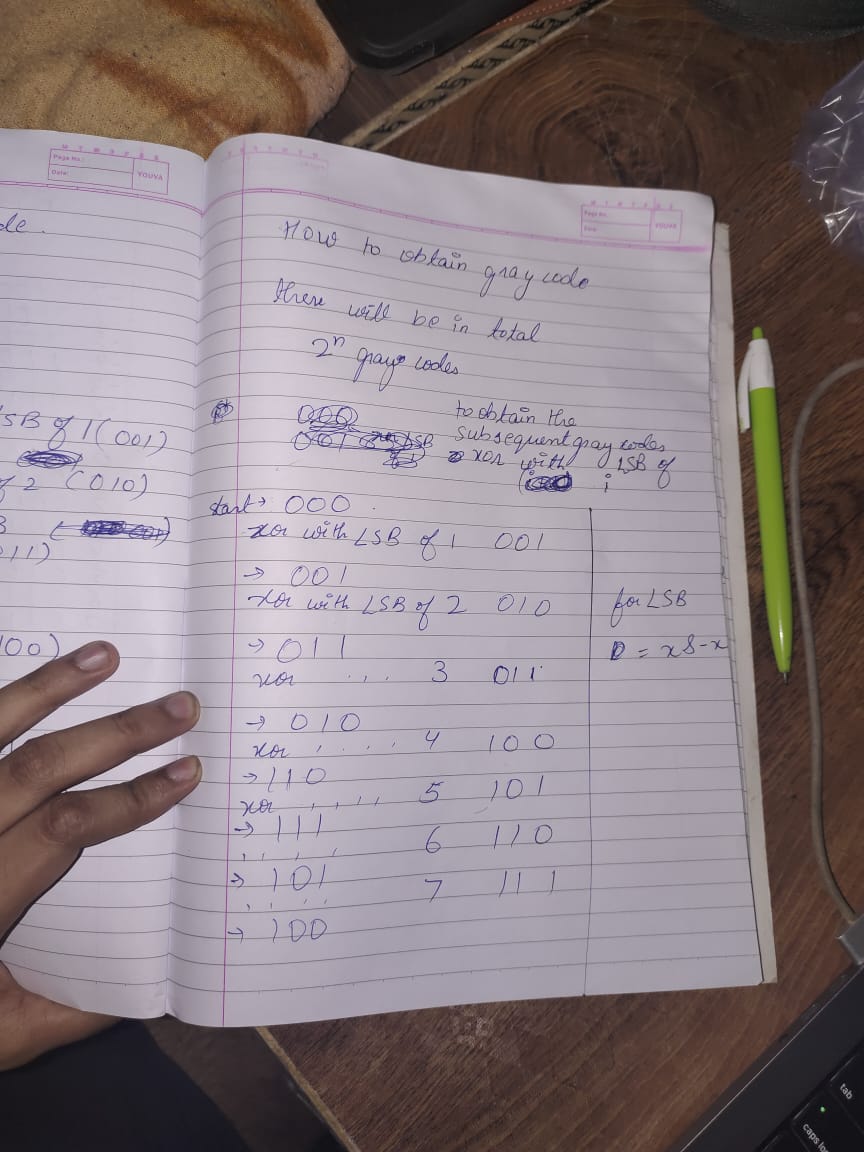 Page No.:
Date:
YOUVA
de.
LSB of 1 (001)
of 2 (010)
011)
100)
Page No.:
Date:
YOUVA
How to obtain gray code
there will be in total
2ⁿ gray codes
000
001
LSB
to obtain the
subsequent gray codes
xor with LSB of
i
start → 000
xor with LSB of 1 001
→ 001
xor with LSB of 2 010
→ 011
xor ... 3 011
→ 010
xor .... 4 100
→ 110
xor .... 5 101
→ 111
.... 6 110
→ 101
.... 7 111
→ 100
for LSB
= x & -x
tab
caps loc